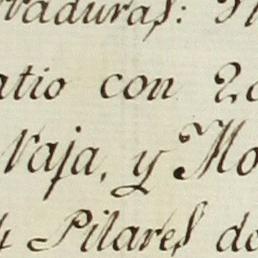 vaduras:
atio con 2
Naja, y Mo
4 Pilares de